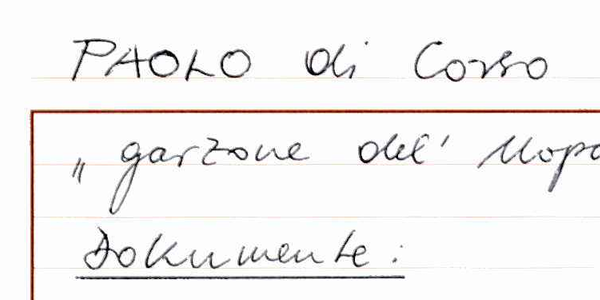 PAOLO di Corso
„ garzone del'
Dokumente: